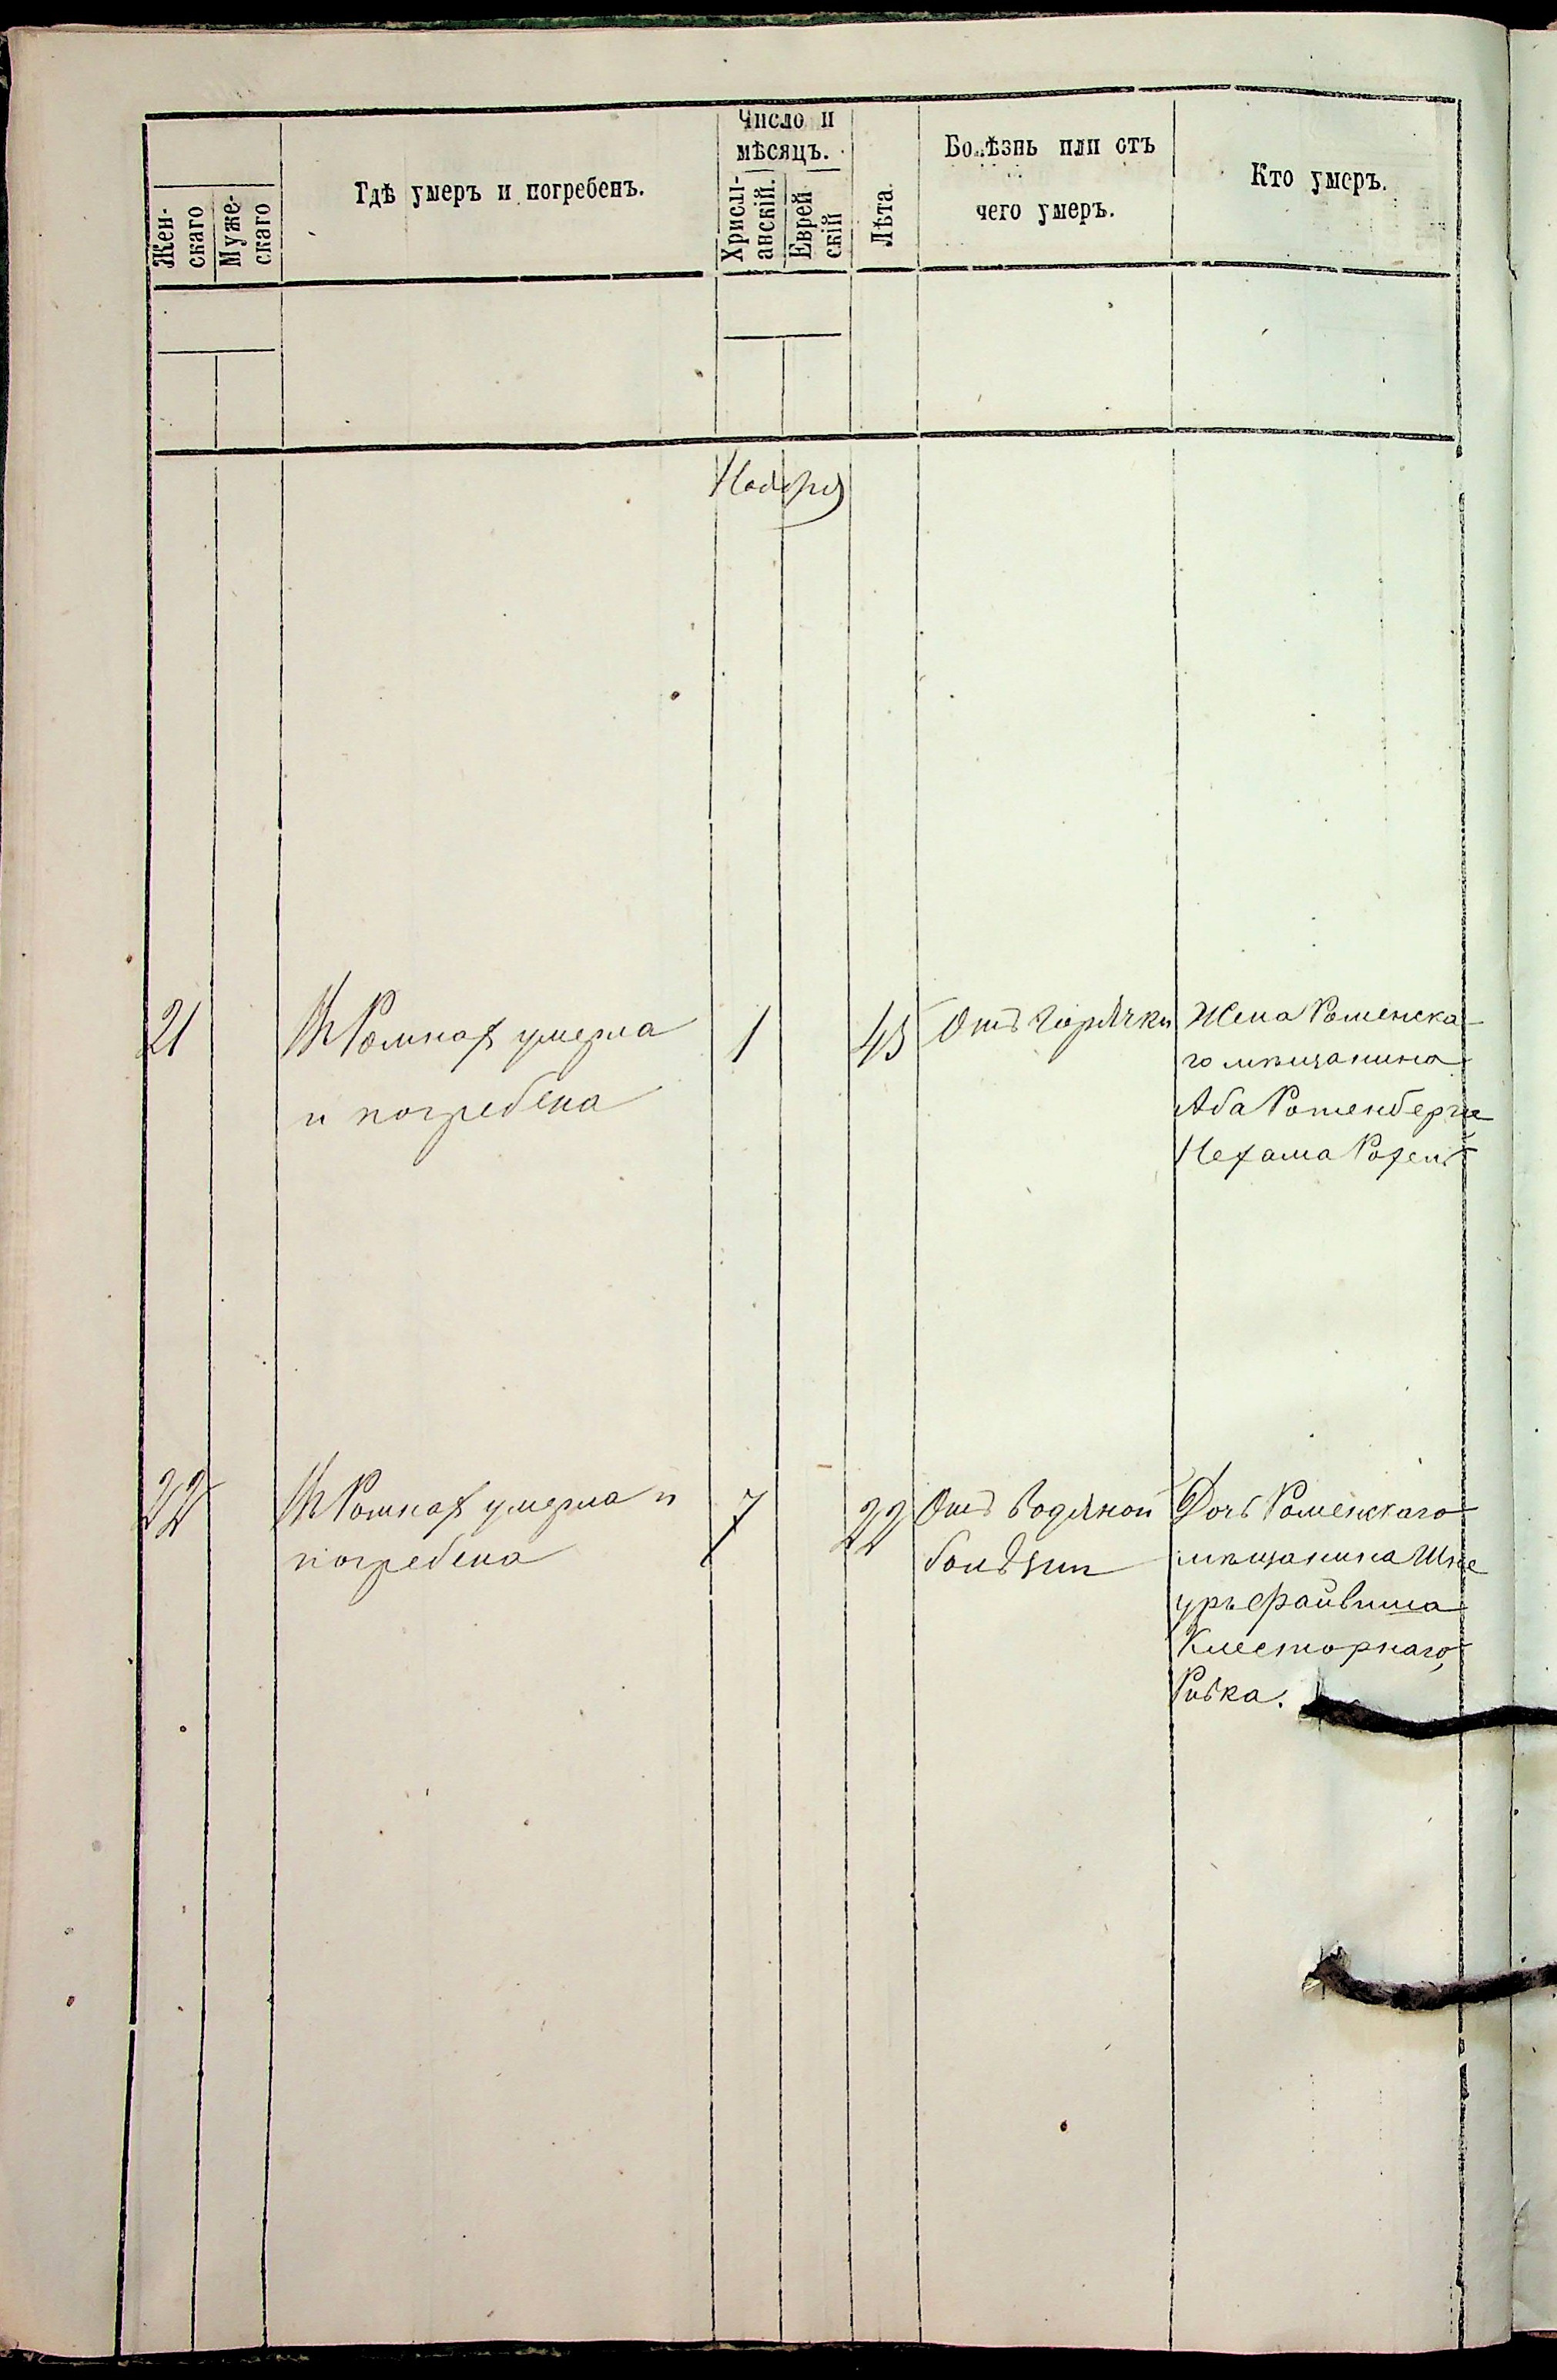 Число и
мѣсяцъ.
Жен-
скаго
Муже-
скаго
Гдѣ умеръ и погребенъ.
Христі-
анскій.
Еврей
скій
Лѣта.
Болѣзнь или отъ
чего умеръ.
Кто умеръ.
Ноября
21
Въ Ромнах умерла
и погребена
1
45
Отъ горячки
Жена Роменска
го мѣщанина
Аба Ротенберга
Нехама Рохель
22
Въ Ромнах умерла и
погребена
7
22
Отъ водяной
болѣзни
Дочь Роменскаго
мѣщанина Шне
уръ Файвиша
Клесторнаго,
Ривка.